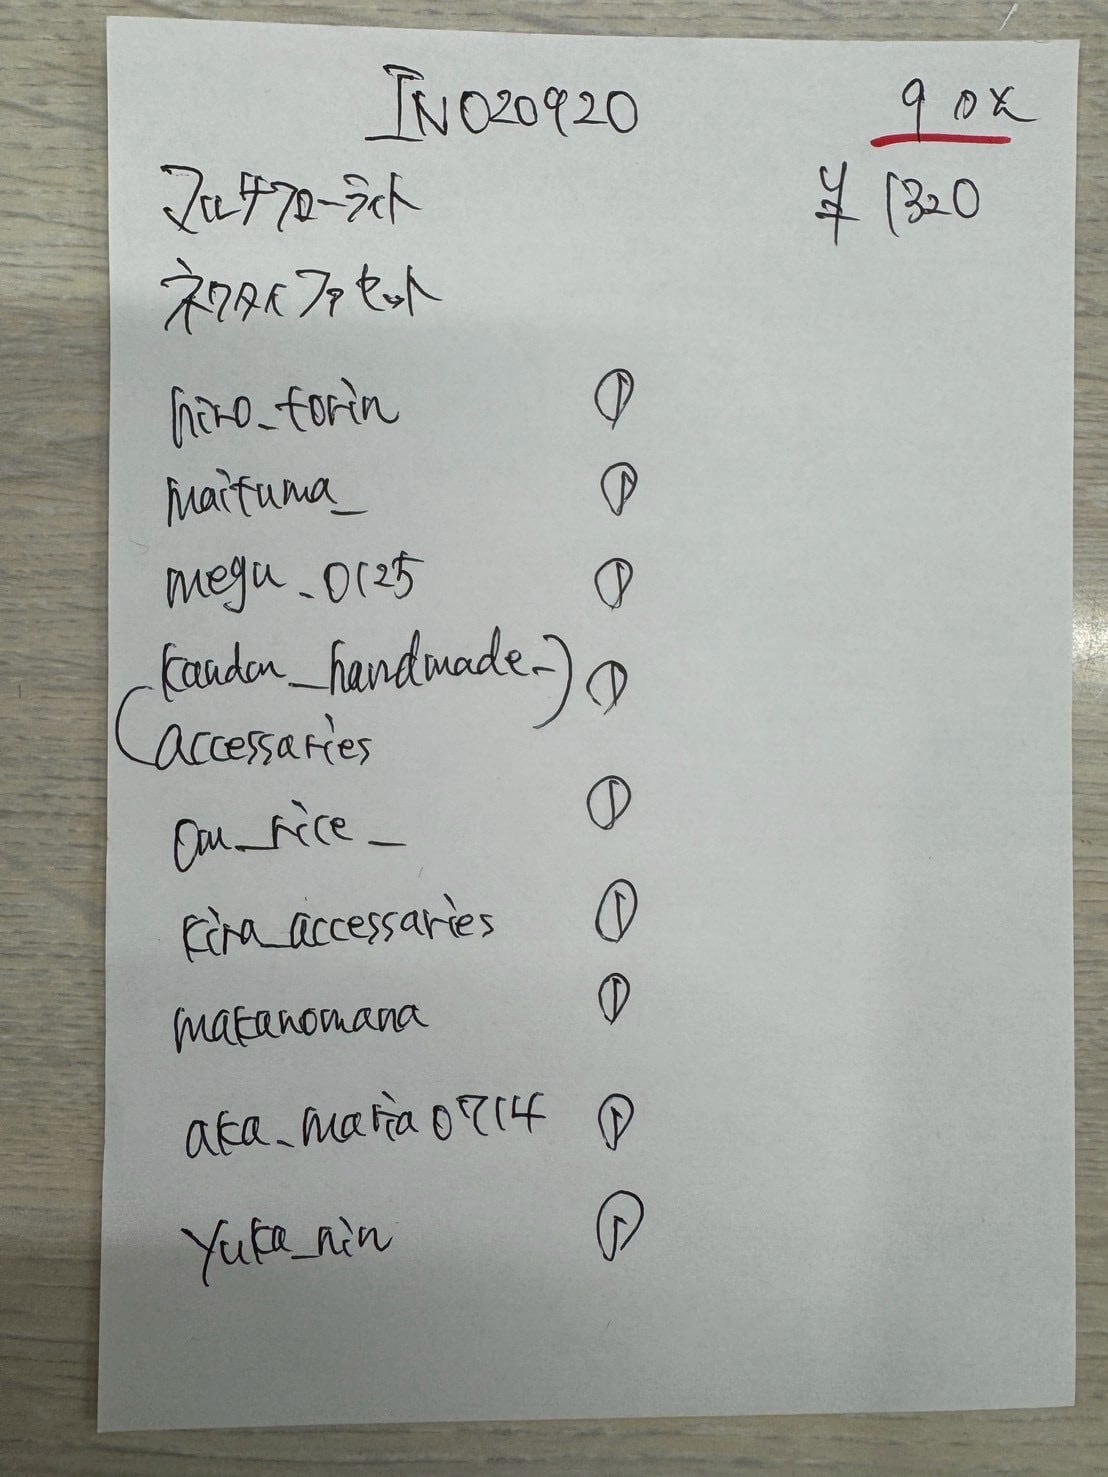 IN020920
9 OK
マルチフローライト
¥1320
ネクタイファセット
hiro_torin ①
maituma_ ①
megu_0125 ①
(kandon_handmade_) ①
accessaries
om_rice_ ①
kira_accessaries ①
makanomana ①
aka_maria0714 ①
yuka_nin ①